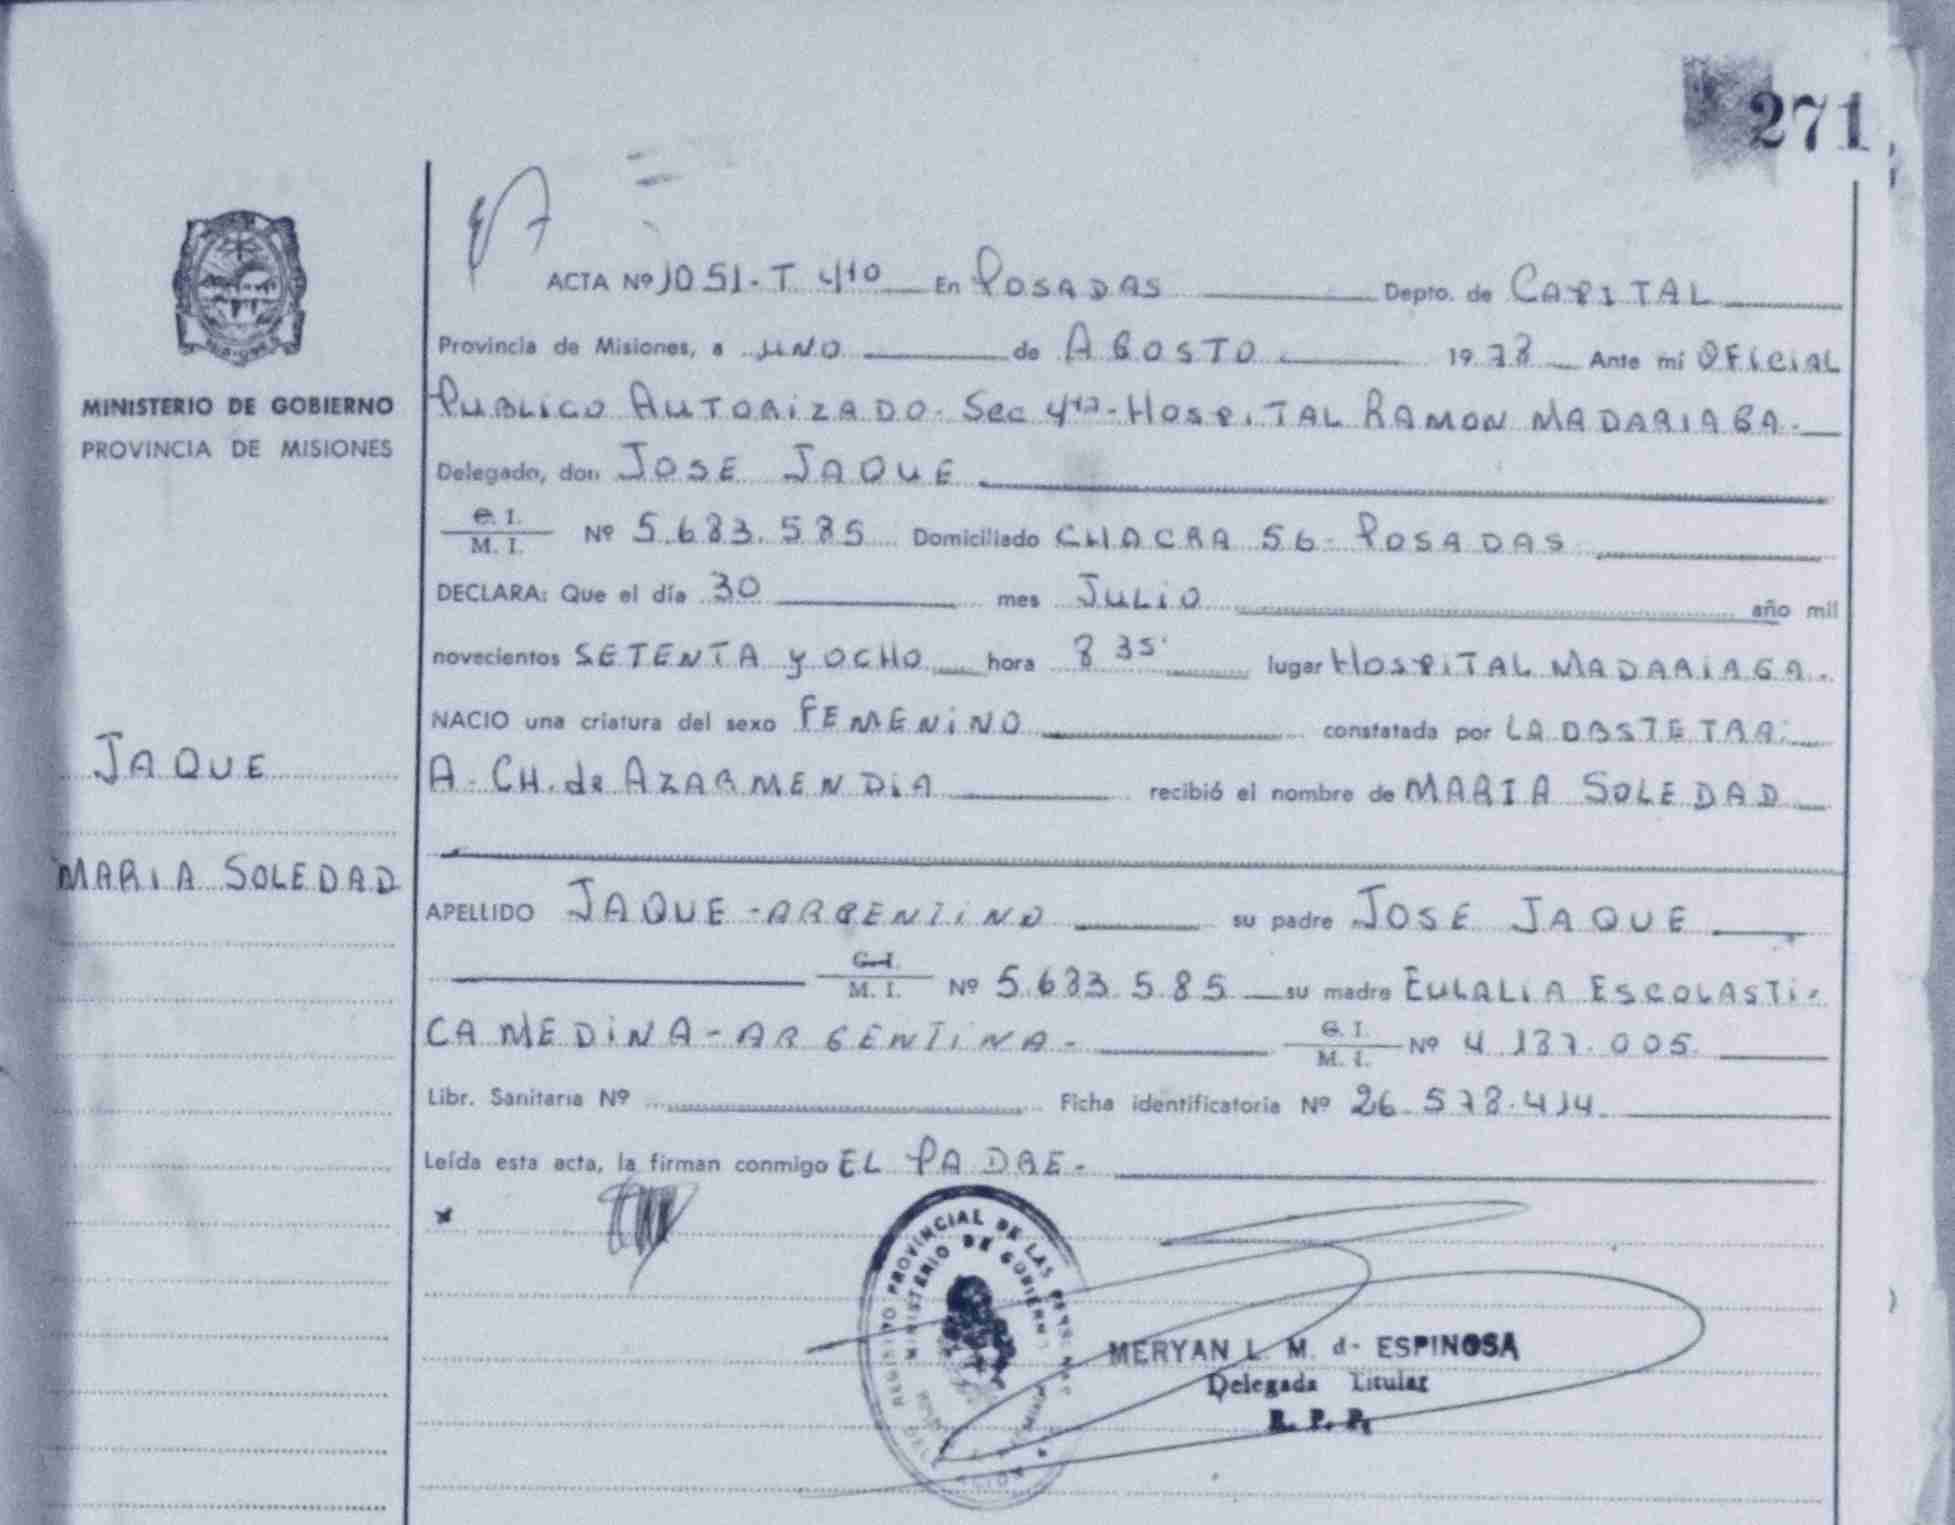 271
ACTA Nº 1051-T 4to En POSADAS Depto. de CAPITAL
Provincia de Misiones, a UNO de AGOSTO 1978 Ante mí OFICIAL
PUBLICO AUTORIZADO. Sec 4ta- HOSPITAL RAMON MADARIAGA.
MINISTERIO DE GOBIERNO
PROVINCIA DE MISIONES
Delegado, don JOSE JAQUE
C. I. / M. I. Nº 5.683.585 Domiciliado CHACRA 56- POSADAS
DECLARA: Que el día 30 mes JULIO año mil
novecientos SETENTA y OCHO hora 8 35' lugar HOSPITAL MADARIAGA.
NACIO una criatura del sexo FEMENINO constatada por LA OBSTETRA:
A. CH. de AZARMENDIA recibió el nombre de MARIA SOLEDAD
JAQUE
MARIA SOLEDAD
APELLIDO JAQUE - ARGENTINO su padre JOSE JAQUE
C. I. / M. I. Nº 5.683.585 su madre EULALIA ESCOLASTI-
CA MEDINA - ARGENTINA - C. I. / M. I. Nº 4.137.005
Libr. Sanitaria Nº Ficha identificatoria Nº 26.578.414
Leída esta acta, la firman conmigo EL PADRE.
REGISTRO PROVINCIAL DE LAS
MINISTERIO DE GOBIERNO
MERYAN L. M. d- ESPINOSA
Delegada Titular
R. P. P.